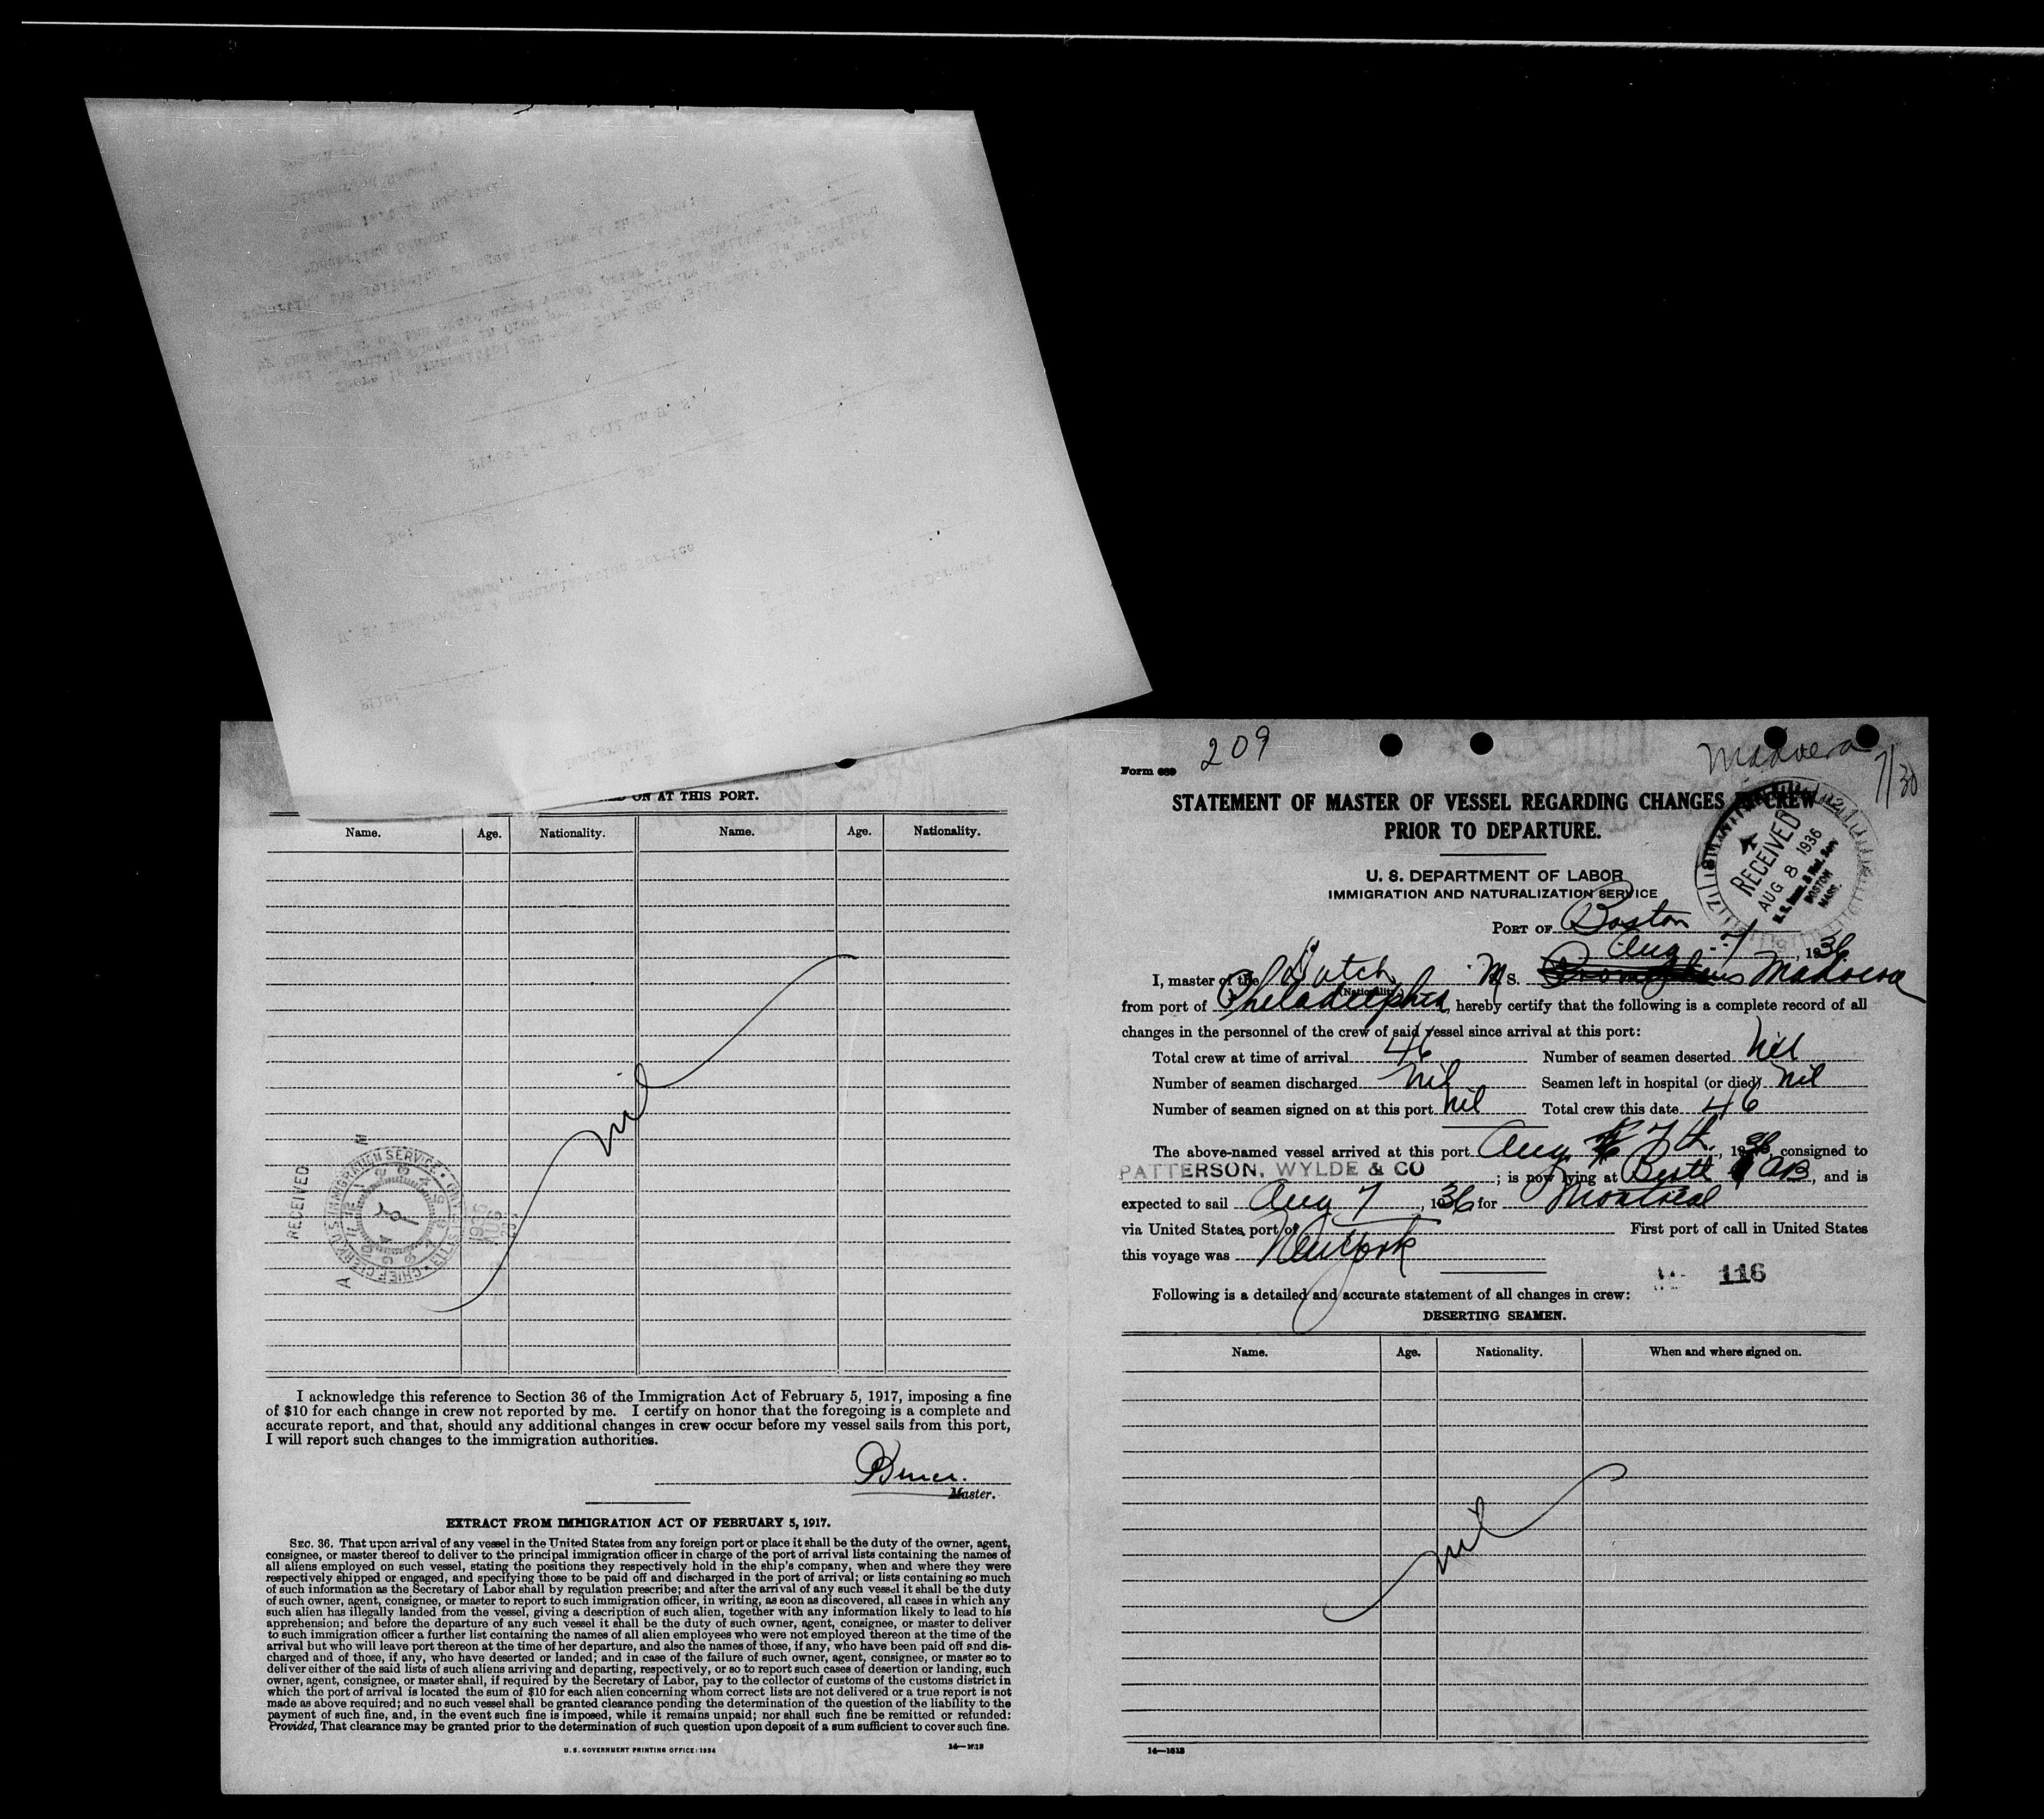 ON AT THIS PORT.
Name. Age. Nationality. Name. Age. Nationality.
nil
RECEIVED
CHIEF CLERK U.S. IMMIGRATION SERVICE
I acknowledge this reference to Section 36 of the Immigration Act of February 5, 1917, imposing a fine
of $10 for each change in crew not reported by me. I certify on honor that the foregoing is a complete and
accurate report, and that, should any additional changes in crew occur before my vessel sails from this port,
I will report such changes to the immigration authorities.
Master.
EXTRACT FROM IMMIGRATION ACT OF FEBRUARY 5, 1917.
SEC. 36. That upon arrival of any vessel in the United States from any foreign port or place it shall be the duty of the owner, agent,
consignee, or master thereof to deliver to the principal immigration officer in charge of the port of arrival lists containing the names of
all aliens employed on such vessel, stating the positions they respectively hold in the ship's company, when and where they were
respectively shipped or engaged, and specifying those to be paid off and discharged in the port of arrival; or lists containing so much
of such information as the Secretary of Labor shall by regulation prescribe; and after the arrival of any such vessel it shall be the duty
of such owner, agent, consignee, or master to report to such immigration officer, in writing, as soon as discovered, all cases in which any
such alien has illegally landed from the vessel, giving a description of such alien, together with any information likely to lead to his
apprehension; and before the departure of any such vessel it shall be the duty of such owner, agent, consignee, or master to deliver
to such immigration officer a further list containing the names of all alien employees who were not employed thereon at the time of the
arrival but who will leave port thereon at the time of her departure, and also the names of those, if any, who have been paid off and dis-
charged and of those, if any, who have deserted or landed; and in case of the failure of such owner, agent, consignee, or master so to
deliver either of the said lists of such aliens arriving and departing, respectively, or so to report such cases of desertion or landing, such
owner, agent, consignee, or master shall, if required by the Secretary of Labor, pay to the collector of customs of the customs district in
which the port of arrival is located the sum of $10 for each alien concerning whom correct lists are not delivered or a true report is not
made as above required; and no such vessel shall be granted clearance pending the determination of the question of the liability to the
payment of such fine, and, in the event such fine is imposed, while it remains unpaid; nor shall such fine be remitted or refunded:
Provided, That clearance may be granted prior to the determination of such question upon deposit of a sum sufficient to cover such fine.
U. S. GOVERNMENT PRINTING OFFICE: 1934
209
Madoera
7/30
Form 689
STATEMENT OF MASTER OF VESSEL REGARDING CHANGES IN CREW
PRIOR TO DEPARTURE.
RECEIVED
AUG 8 1936
BOSTON
MASS.
U. S. DEPARTMENT OF LABOR
IMMIGRATION AND NATURALIZATION SERVICE
PORT OF Boston
Aug 7, 1936
I, master of the Dutch M. S. Madoera
(Nationality)
from port of Philadelphia, hereby certify that the following is a complete record of all
changes in the personnel of the crew of said vessel since arrival at this port:
Total crew at time of arrival 46 Number of seamen deserted nil
Number of seamen discharged nil Seamen left in hospital (or died) nil
Number of seamen signed on at this port nil Total crew this date 46
The above-named vessel arrived at this port Aug 7th, 1936 consigned to
PATTERSON, WYLDE & CO; is now lying at Berth, and is
expected to sail Aug 7, 1936 for Montreal
via United States port of First port of call in United States
this voyage was New York
116
Following is a detailed and accurate statement of all changes in crew:
DESERTING SEAMEN.
Name. Age. Nationality. When and where signed on.
nil
14—1613